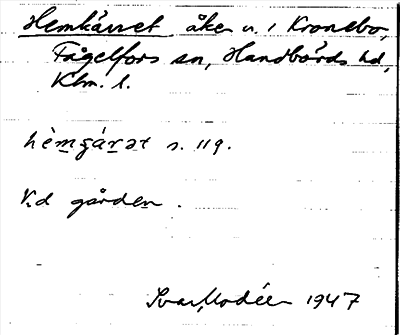 Hemkärret åker n. i Kronebo,
Fågelfors sn, Handbörds hd,
Klm. l.
hèmʒárət s. 119.
Vid gården.
Ivar Modéer 1947